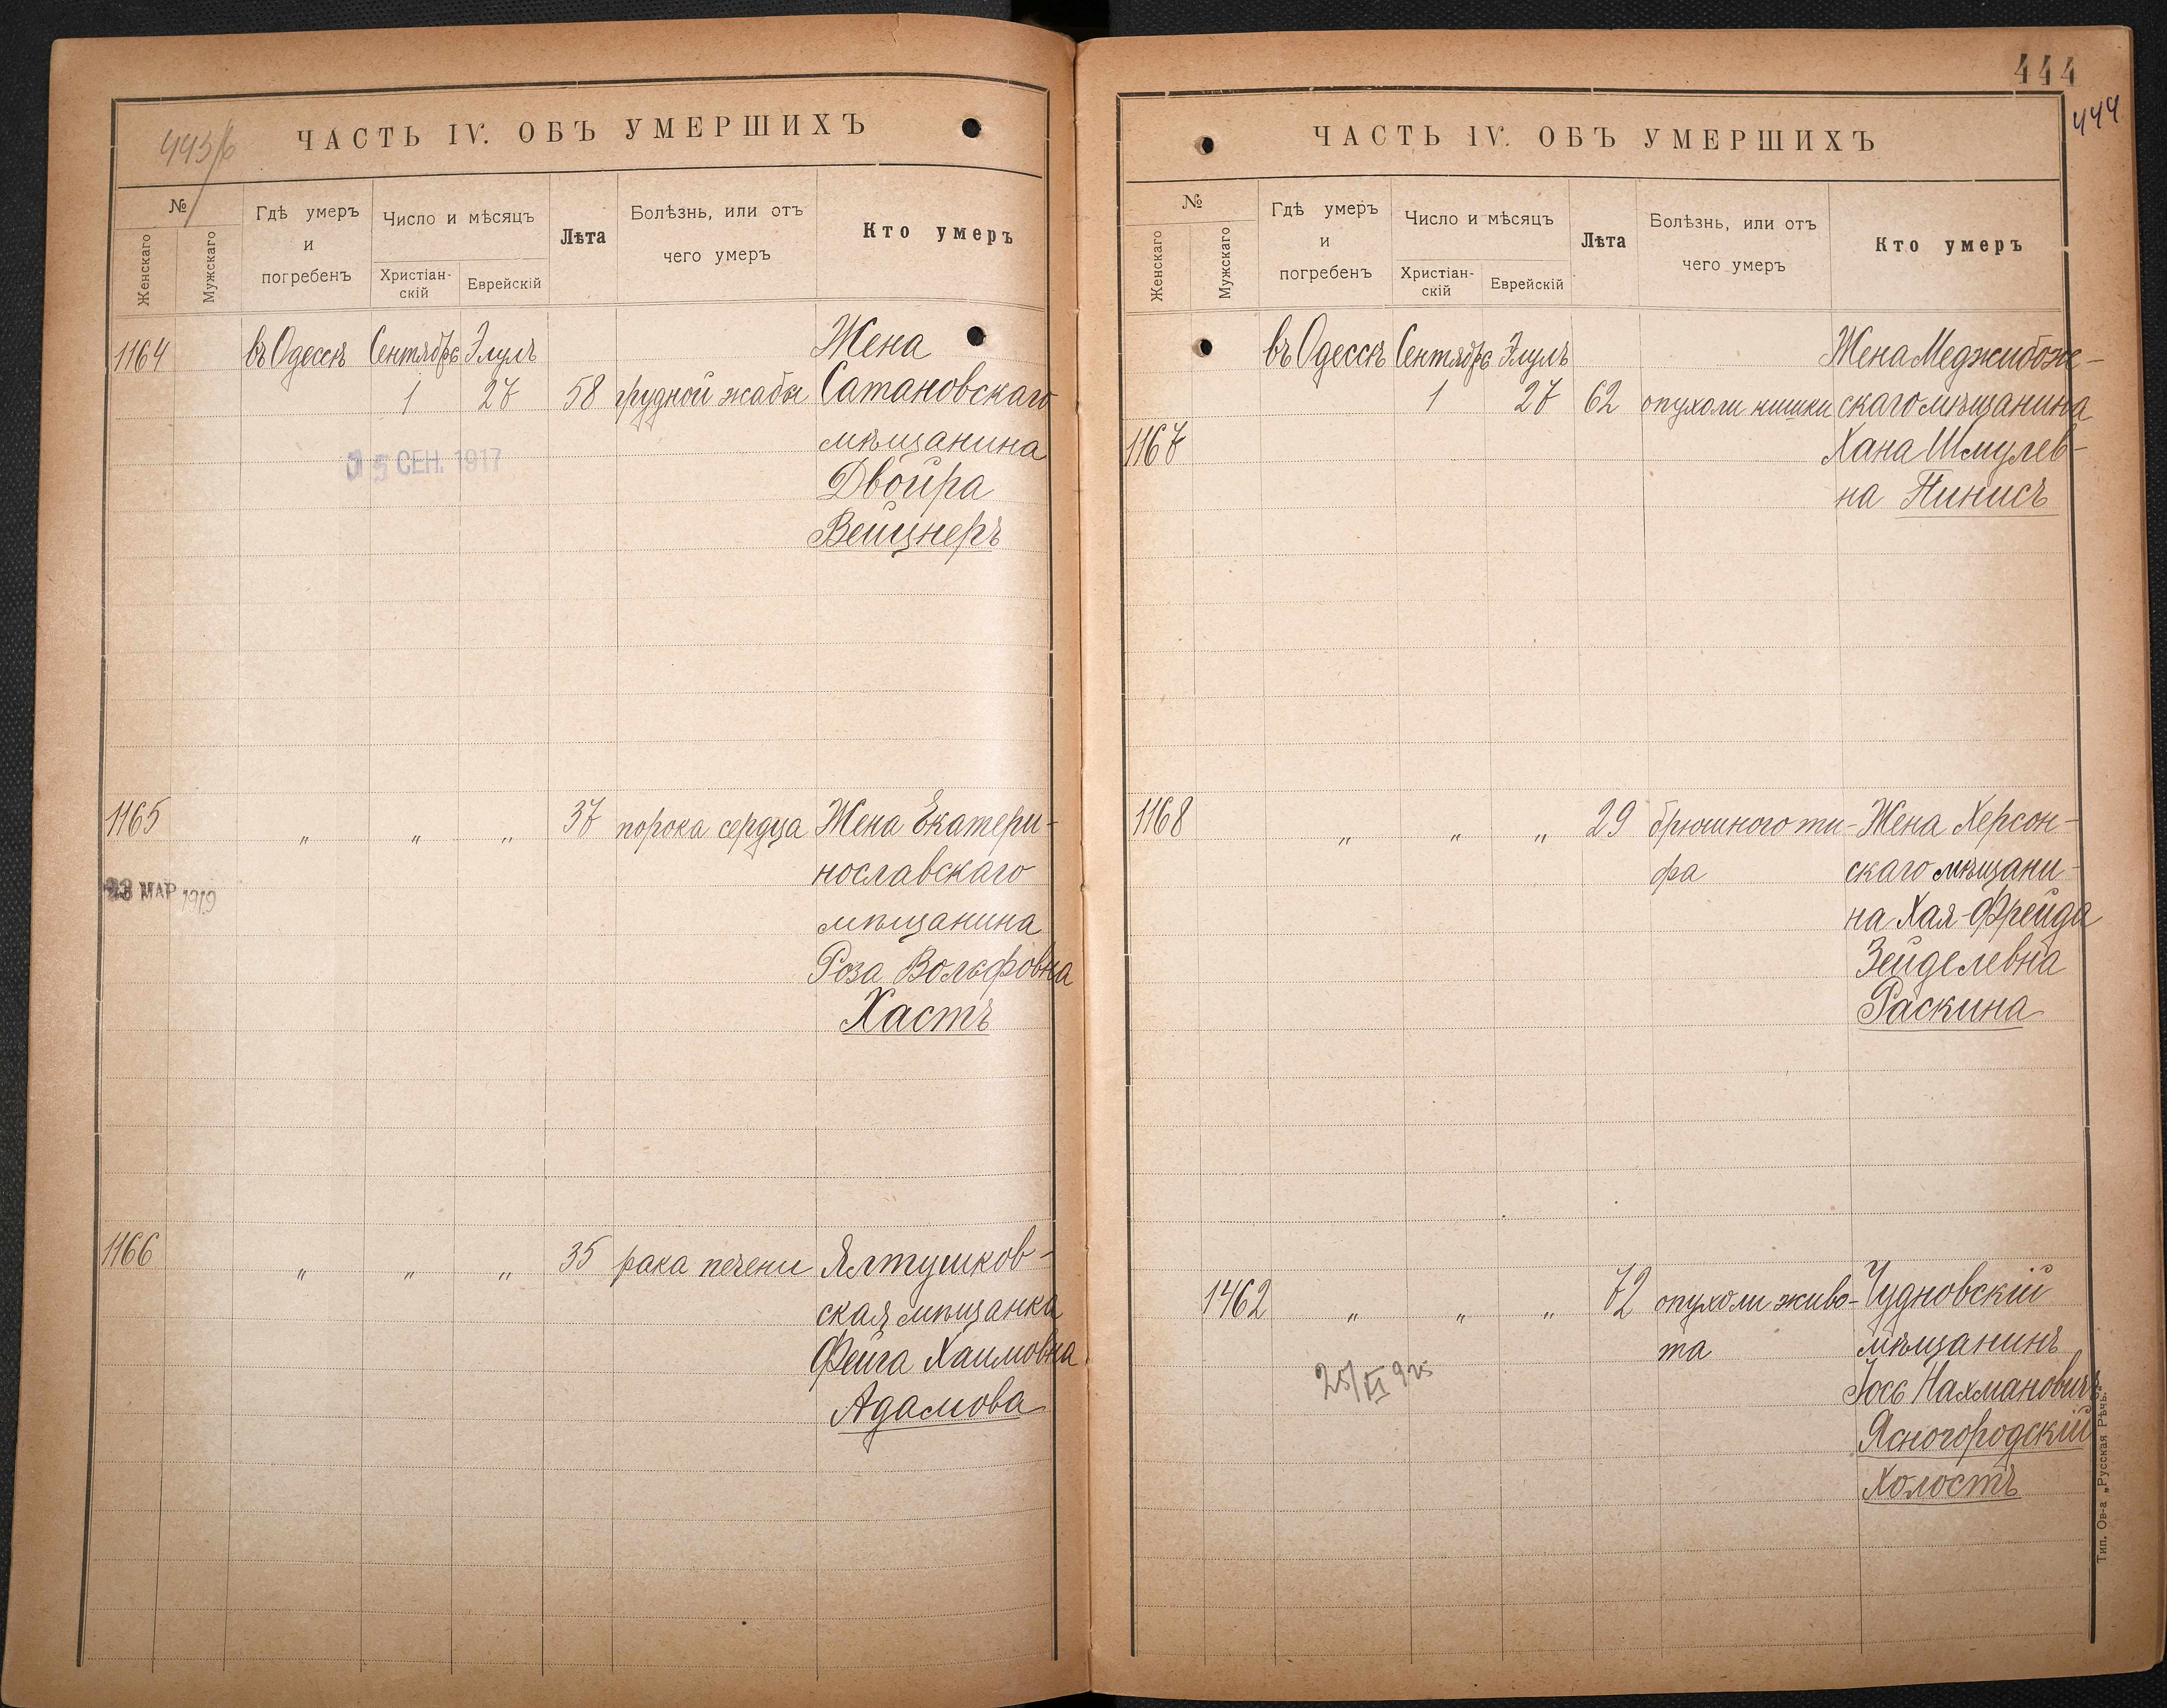 443/б
ЧАСТЬ IV. ОБЪ УМЕРШИХЪ
№
Женскаго
Мужскаго
Гдѣ умеръ
и
погребенъ
Число и мѣсяцъ
Христіан-
скій
Еврейскій
Лѣта
Болѣзнь, или отъ
чего умеръ
Кто умеръ
1164 въ Одессѣ Сентября Элулъ Жена
1 27 58 грудной жабы Сатановскаго
мѣщанина
СЕН. 1917
Двойра
Вейцнеръ
1165 „ „ „ 37 порока сердца Жена Екатери-
нославскаго
МАР 1919
мѣщанина
Роза Вольфовна
Хастъ
1166 „ „ „ 35 рака печени Ялтушков-
ская мѣщанка
Фейга Хаимовна
Адамова
444
444
ЧАСТЬ IV. ОБЪ УМЕРШИХЪ
№
Женскаго
Мужскаго
Гдѣ умеръ
и
погребенъ
Число и мѣсяцъ
Христіан-
скій
Еврейскій
Лѣта
Болѣзнь, или отъ
чего умеръ
Кто умеръ
въ Одессѣ Сентября Элулъ Жена Меджибож-
1 27 62 опухоли кишки скаго мѣщанина
1167 Хана Шмулев-
на Пинисъ
1168 „ „ „ 29 брюшного ти- Жена Херсон-
фа скаго мѣщани-
на Хая-Фрейда
Зейделевна
Раскина
1462 „ „ „ 72 опухоли живо- Чудновскій
та мѣщанинъ
25/XI 925
Іось Нахмановичъ
Ясногородскій
Холостъ
Тип. Ов-а „Русская Рѣчь"